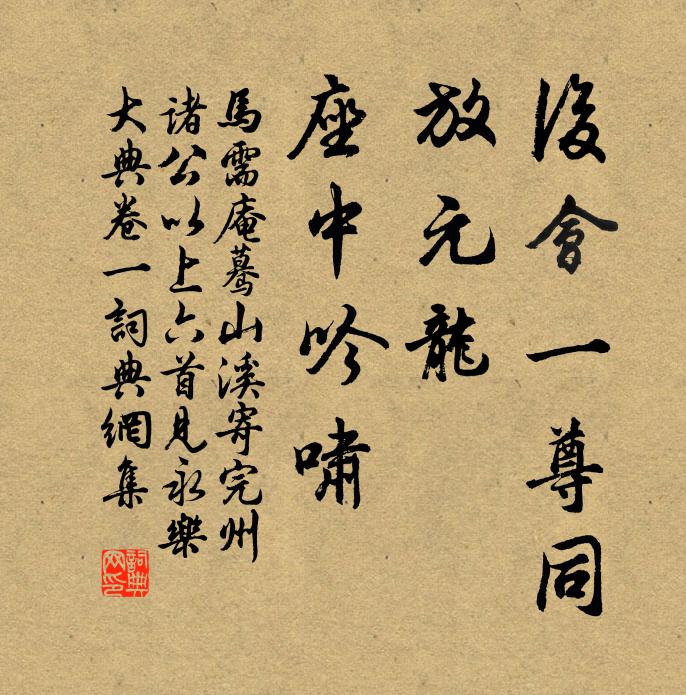 後會一尊同
放元龍
座中吟嘯
馬需庵驀山溪寄完州
諸公以上六首見永樂
大典卷一詞典網集
詞典
网印